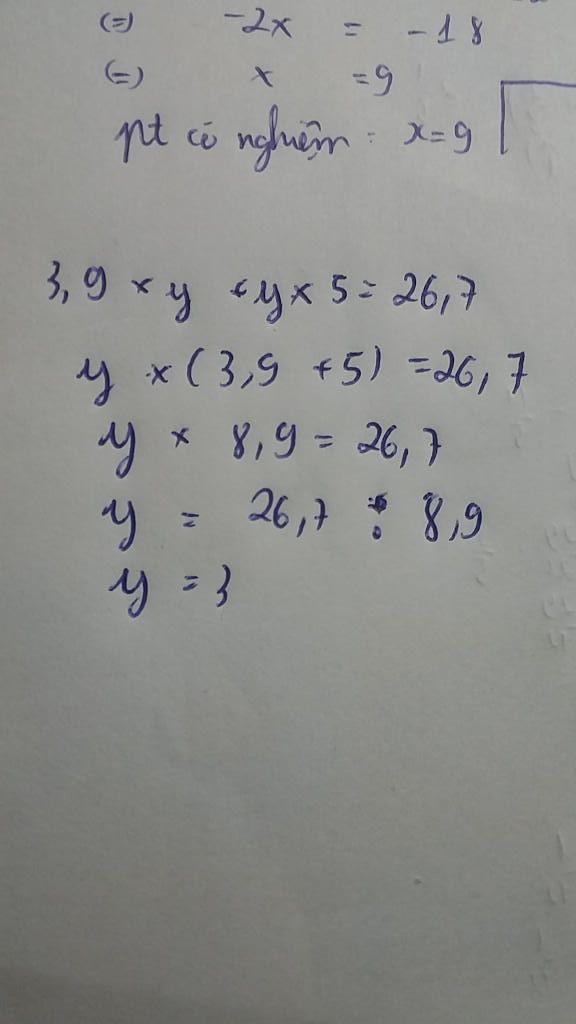 (=) -2x = -18
(=) x = 9
pt có nghiệm: x = 9
3,9 × y + y × 5 = 26,7
y × (3,9 + 5) = 26,7
y × 8,9 = 26,7
y = 26,7 : 8,9
y = 3